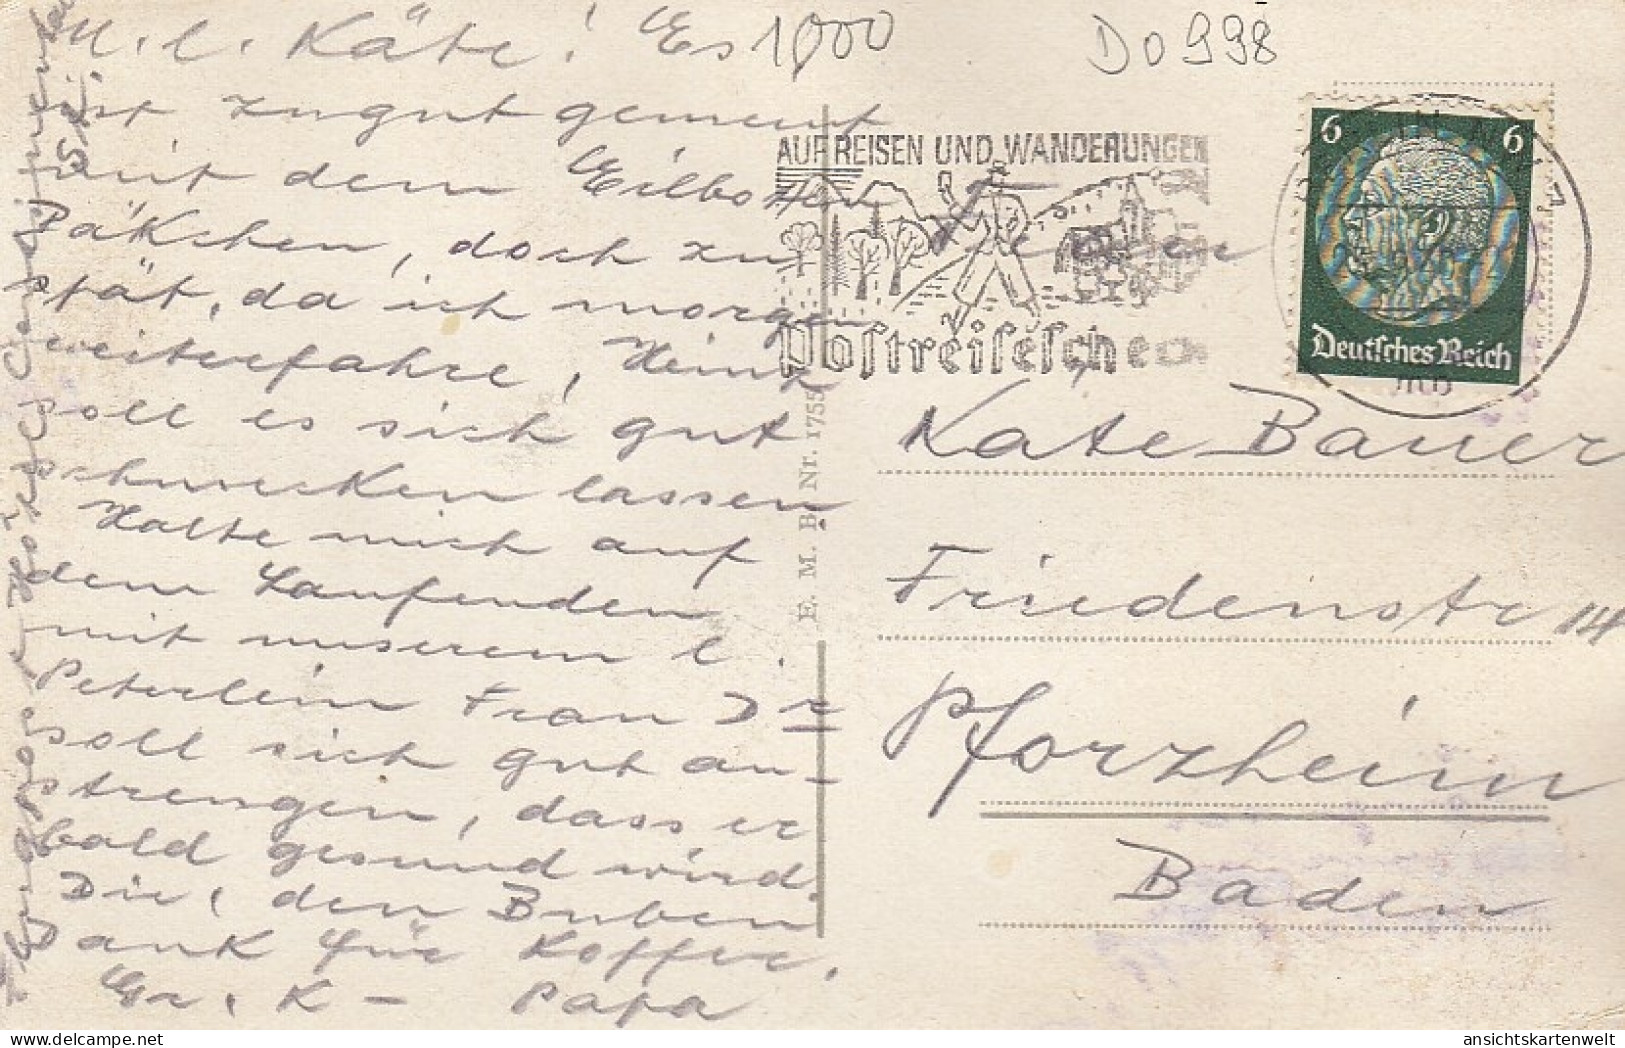 M. l. Käte! Es
ist zugut gemeint
mit dem Eilboten
Päkchen, doch zu
spät, da ich morgen
weiterfahre, Heinz
soll es sich gut
schmecken lassen
Halte mich auf
dem Laufenden
mit unserem l.
Peterlein Frau Dr
soll sich gut an-
strengen, dass er
bald gesund wird.
Die, den Buben
Dank für Koffer.
Gr. K - Papa
1000
Do 998
AUF REISEN UND WANDERUNGEN
Postreisescheck
6 6
Deutsches Reich
E. M. B. Nr. 1755
Käte Bauer
Friedenstr 14
Pforzheim
Baden
ansichtskartenwelt